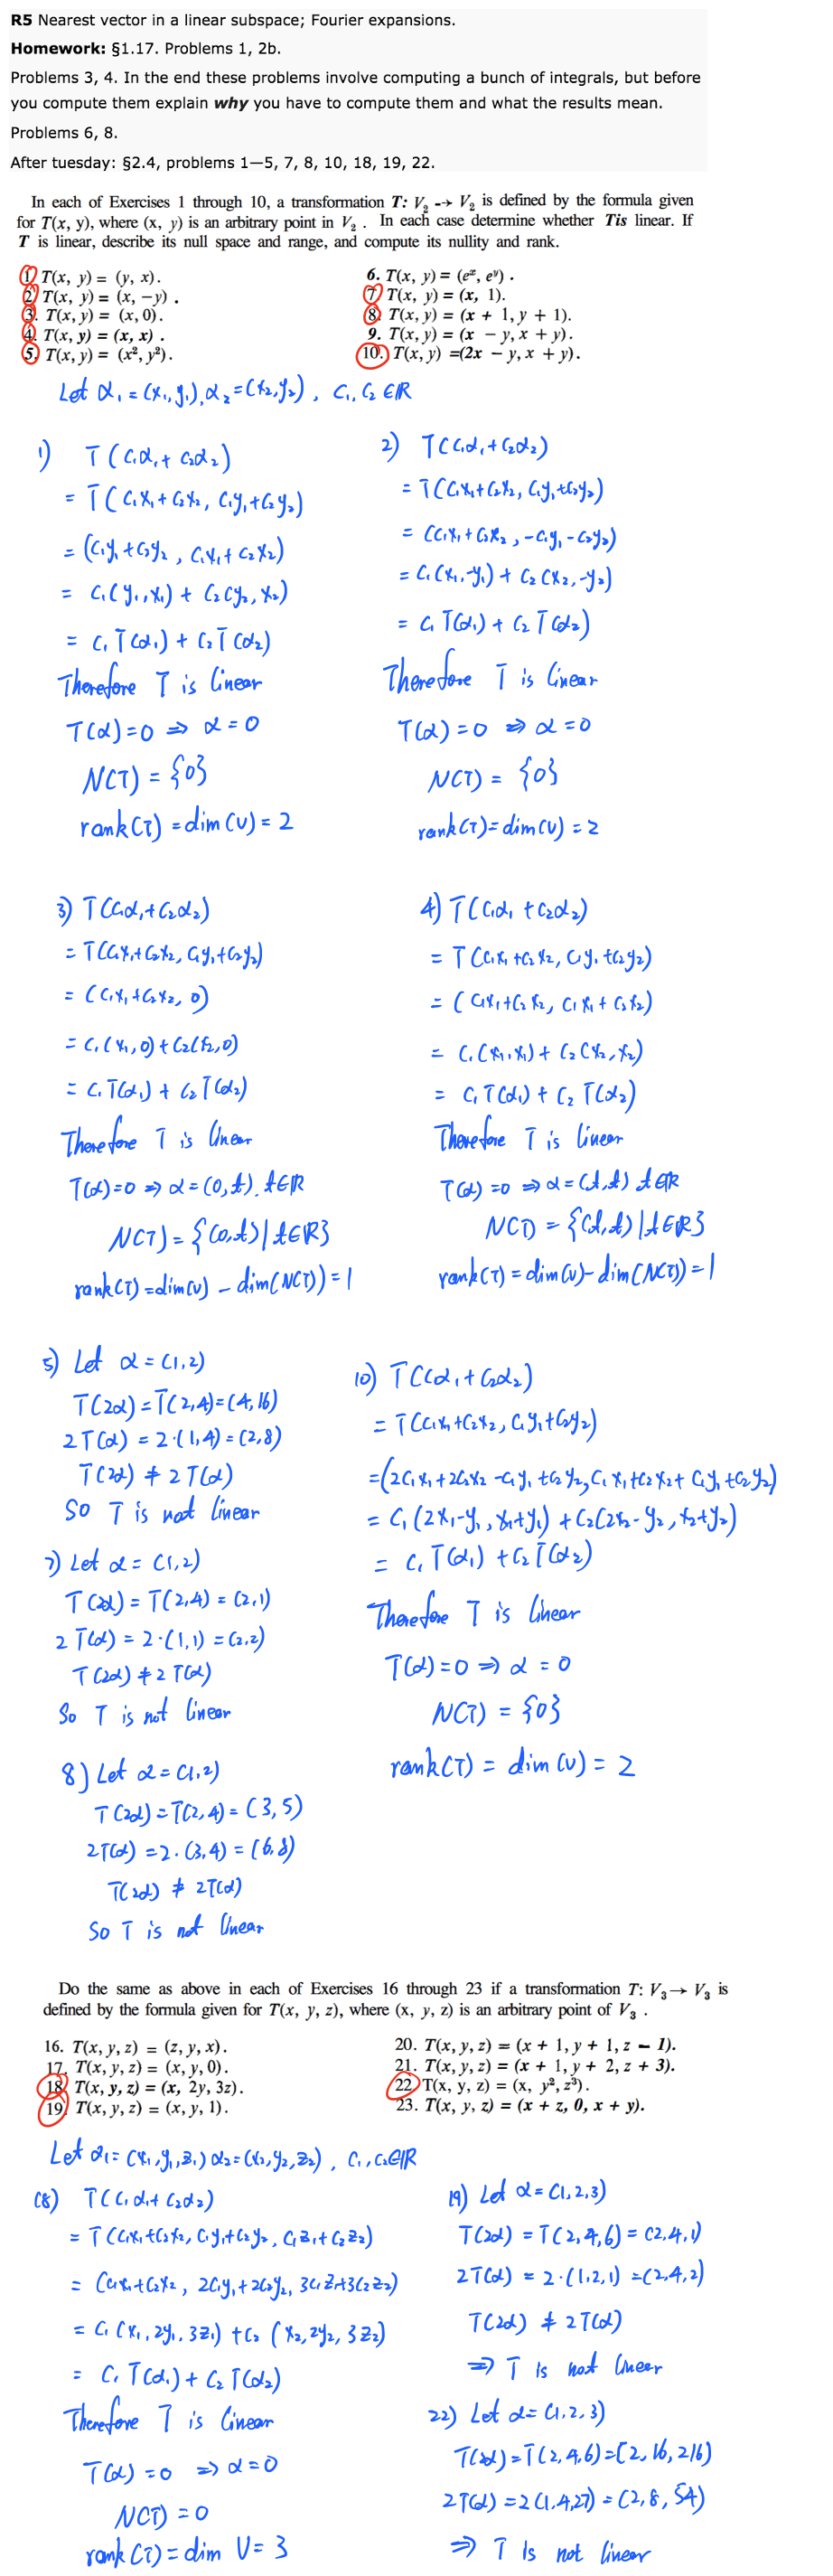 R5 Nearest vector in a linear subspace; Fourier expansions.
Homework: §1.17. Problems 1, 2b.
Problems 3, 4. In the end these problems involve computing a bunch of integrals, but before
you compute them explain why you have to compute them and what the results mean.
Problems 6, 8.
After tuesday: §2.4, problems 1—5, 7, 8, 10, 18, 19, 22.
In each of Exercises 1 through 10, a transformation T: V₂ -→ V₂ is defined by the formula given
for T(x, y), where (x, y) is an arbitrary point in V₂ . In each case determine whether Tis linear. If
T is linear, describe its null space and range, and compute its nullity and rank.
1) T(x, y) = (y, x).
2) T(x, y) = (x, −y) .
3. T(x, y) = (x, 0).
4. T(x, y) = (x, x) .
5) T(x, y) = (x², y²).
6. T(x, y) = (eˣ, eʸ) .
7) T(x, y) = (x, 1).
8) T(x, y) = (x + 1, y + 1).
9. T(x, y) = (x − y, x + y).
10. T(x, y) =(2x − y, x + y).
Let α₁ = (x₁, y₁), α₂ = (x₂, y₂) , C₁, C₂ ∈ℝ
1) T (C₁α₁ + C₂α₂)
= T ( C₁X₁ + C₂X₂, C₁y₁+C₂y₂)
= (C₁y₁ + C₂y₂ , C₁X₁ + C₂X₂)
= C₁( y₁, x₁) + C₂(y₂, x₂)
= C₁ T(α₁) + C₂ T(α₂)
Therefore T is linear
T(α)=0 ⇒ α = 0
N(T) = {0}
rank(T) = dim(V) = 2
2) T(C₁α₁ + C₂α₂)
= T(C₁x₁+C₂x₂, C₁y₁+C₂y₂)
= (C₁x₁ + C₂x₂ , -C₁y₁ - C₂y₂)
= C₁(x₁, -y₁) + C₂(x₂, -y₂)
= C₁ T(α₁) + C₂ T(α₂)
Therefore T is linear
T(α) = 0 ⇒ α = 0
N(T) = {0}
rank(T) = dim(V) = 2
3) T(C₁α₁+C₂α₂)
= T(C₁x₁+C₂x₂, C₁y₁+C₂y₂)
= (C₁x₁ + C₂x₂, 0)
= C₁(x₁, 0) + C₂(x₂, 0)
= C₁ T(α₁) + C₂ T(α₂)
Therefore T is linear
T(α)=0 ⇒ α = (0, t), t∈ℝ
N(T) = {(0,t)|t∈ℝ}
rank(T) = dim(V) - dim(N(T)) = 1
4) T(C₁α₁ + C₂α₂)
= T(C₁x₁ + C₂x₂, C₁y₁ + C₂y₂)
= ( C₁x₁+C₂x₂, C₁x₁ + C₂x₂)
= C₁(x₁, x₁) + C₂(x₂, x₂)
= C₁ T(α₁) + C₂ T(α₂)
Therefore T is linear
T(α) = 0 ⇒ α = (t,t) t∈ℝ
N(T) = {(t,t)|t∈ℝ}
rank(T) = dim(V) - dim(N(T)) = 1
5) Let α = (1,2)
T(2α) = T(2,4) = (4,16)
2T(α) = 2·(1,4) = (2,8)
T(2α) ≠ 2T(α)
So T is not linear
7) Let α = (1,2)
T(2α) = T(2,4) = (2,1)
2T(α) = 2·(1,1) = (2,2)
T(2α) ≠ 2T(α)
So T is not linear
8) Let α = (1,2)
T(2α) = T(2,4) = (3,5)
2T(α) = 2·(3,4) = (6,8)
T(2α) ≠ 2T(α)
So T is not linear
10) T(C₁α₁ + C₂α₂)
= T(C₁x₁+C₂x₂, C₁y₁+C₂y₂)
=(2C₁x₁ + 2C₂x₂ -C₁y₁ +C₂y₂, C₁x₁+C₂x₂+ C₁y₁+C₂y₂)
= C₁(2x₁-y₁, x₁+y₁) + C₂(2x₂-y₂, x₂+y₂)
= C₁ T(α₁) + C₂ T(α₂)
Therefore T is linear
T(α) = 0 ⇒ α = 0
N(T) = {0}
rank(T) = dim(V) = 2
Do the same as above in each of Exercises 16 through 23 if a transformation T: V₃→ V₃ is
defined by the formula given for T(x, y, z), where (x, y, z) is an arbitrary point of V₃ .
16. T(x, y, z) = (z, y, x).
17. T(x, y, z) = (x, y, 0).
18. T(x, y, z) = (x, 2y, 3z).
19. T(x, y, z) = (x, y, 1).
20. T(x, y, z) = (x + 1, y + 1, z − 1).
21. T(x, y, z) = (x + 1, y + 2, z + 3).
22. T(x, y, z) = (x, y², z³).
23. T(x, y, z) = (x + z, 0, x + y).
Let α₁ = (x₁, y₁, z₁) α₂ = (x₂, y₂, z₂) , C₁, C₂∈ℝ
18) T(C₁α₁ + C₂α₂)
= T(C₁x₁+C₂x₂, C₁y₁+C₂y₂, C₁z₁+C₂z₂)
= (C₁x₁+C₂x₂, 2C₁y₁+2C₂y₂, 3C₁z₁+3C₂z₂)
= C₁(x₁, 2y₁, 3z₁) + C₂ (x₂, 2y₂, 3z₂)
= C₁ T(α₁) + C₂ T(α₂)
Therefore T is linear
T(α) = 0 ⇒ α = 0
N(T) = 0
rank(T) = dim V = 3
19) Let α = (1,2,3)
T(2α) = T(2,4,6) = (2,4,1)
2T(α) = 2·(1,2,1) = (2,4,2)
T(2α) ≠ 2T(α)
⇒ T is not linear
22) Let α = (1,2,3)
T(2α) = T(2,4,6) = (2,16,216)
2T(α) = 2(1,4,27) = (2,8,54)
⇒ T is not linear